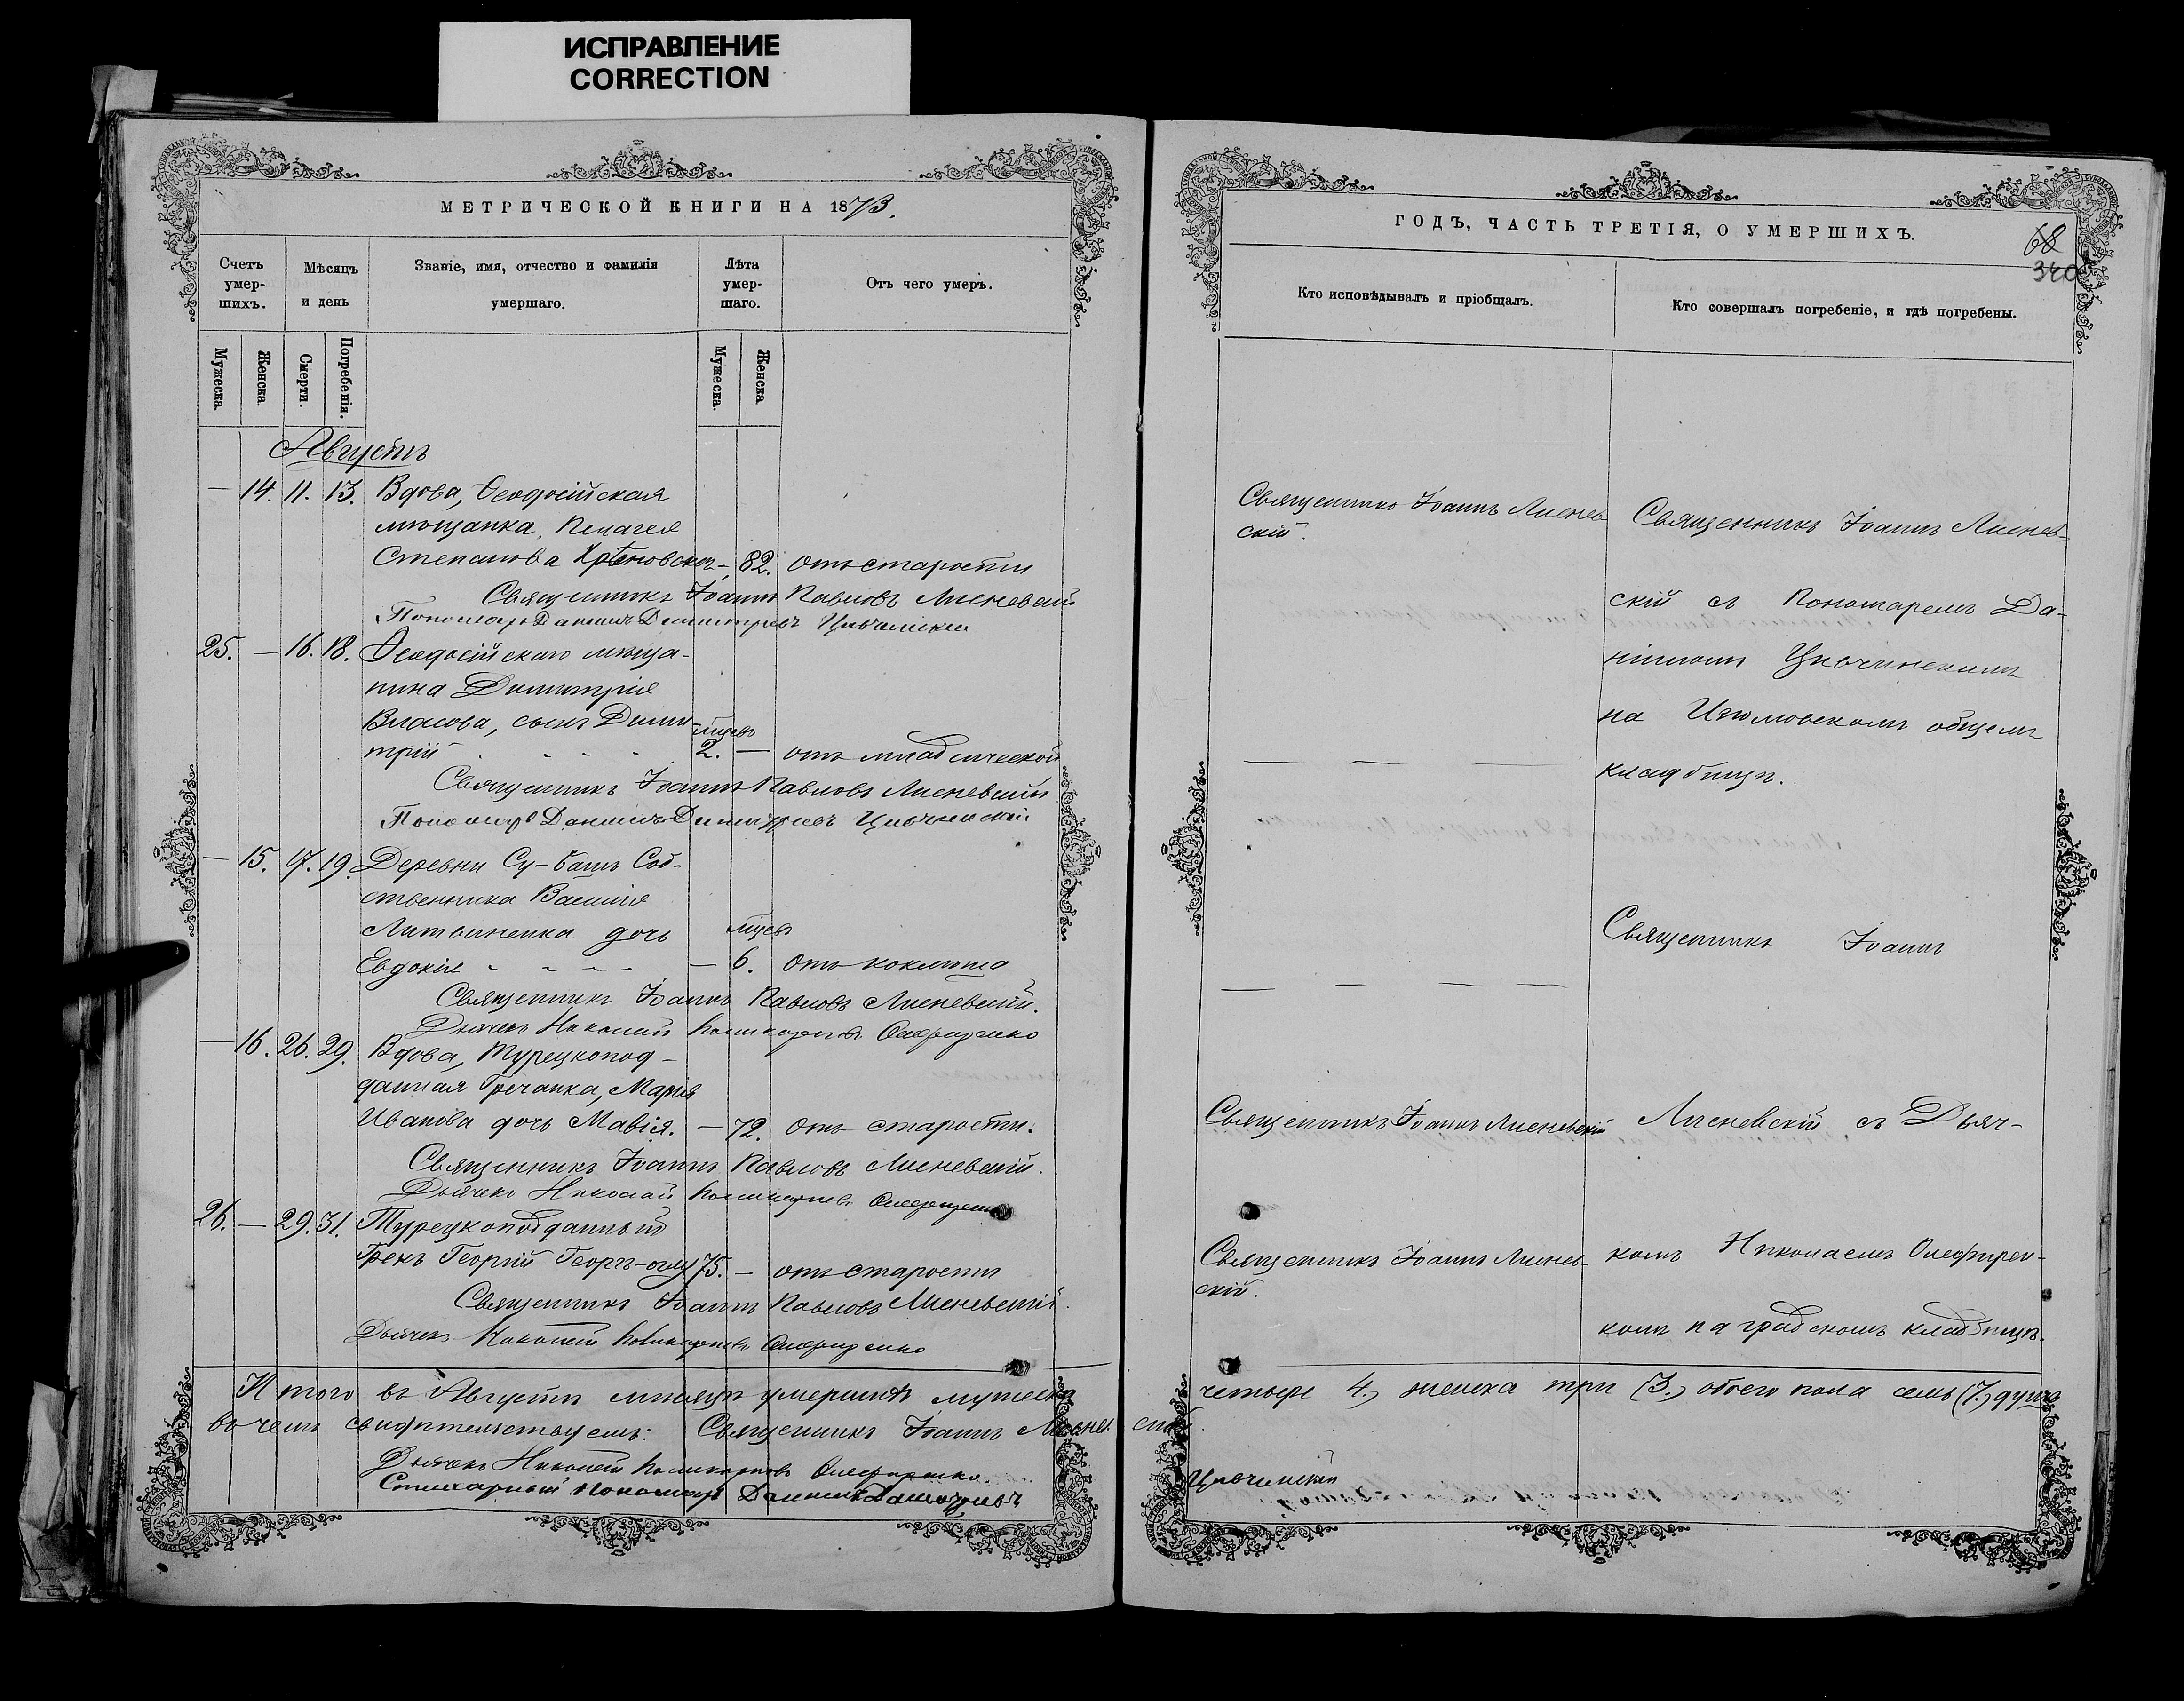 ИСПРАВЛЕНИЕ
CORRECTION
МЕТРИЧЕСКОЙ КНИГИ НА 1873.
Счетъ умер-шихъ.
Мѣсяцъ и день
Званіе, имя, отчество и фамилія умершаго.
Лѣта умер-шаго.
Отъ чего умеръ.
Мужеска.
Женска
Смерти.
Погребенія.
Мужеска.
Женска
Августъ
— 14. 11. 13. Вдова, Ѳеодосійская
мѣщанка, Пелагея
Степанова — 82. отъ старости
Священникъ Іоаннъ Павловъ Лисневскій
Пономарь Даніилъ Димитріевъ
25. — 16. 18. Ѳеодосійскаго мѣща-
нина Димитрія
Власова, сынъ Дими-
мѣсв
трій - - - - 2. — отъ младенческой
Священникъ Іоаннъ Павловъ Лисневскій
Пономарь Даніилъ Димитріевъ
— 15. 17. 19. Деревни Су-Башъ Соб-
ственника Василія
Литвиненка дочь мѣсв
Евдокія - - - - — 6. Отъ коклюша
Священникъ Іоаннъ Павловъ Лисневскій.
Дьячекъ Николай Поликарповъ Олефиренко
— 16. 26. 29. Вдова, Турецкопод-
данная Гречанка, Марія
Иванова дочь Мавія. — 72. Отъ старости.
Священникъ Іоаннъ Павловъ Лисневскій.
Дьячекъ Николай Поликарповъ Олефиренко
26. — 29. 31. Турецкоподданный
Грекъ Георгій Георгъ-оглу 75. — отъ старости
Священникъ Іоаннъ Павловъ Лисневскій.
Дьячекъ Николай Поликарповъ Олефиренко
Итого въ Августѣ мѣсяцѣ умершихъ мужеска
въ чемъ свидѣтельствуемъ: Священникъ Іоаннъ Лисневскій.
Дьячекъ Николай Поликарповъ Олефиренко.
Стихарный пономарь Даніилъ Димитріевъ
ГОДЪ, ЧАСТЬ ТРЕТІЯ, О УМЕРШИХЪ.
68
340
Кто исповѣдывалъ и пріобщалъ.
Кто совершалъ погребеніе, и гдѣ погребены.
Священникъ Іоаннъ Лиснев-
скій.
Священникъ Іоаннъ Лиснев-
скій съ Пономаремъ Да-
ніиломъ
на Изюмовскомъ общемъ
кладбищѣ.
Священникъ Іоаннъ
Священникъ Іоаннъ Лисневскій
Лисневскій съ Дьяч-
Священникъ Іоаннъ Лиснев-
скій.
комъ Николаемъ Олефирен-
комъ на градскомъ кладбищѣ.
четыре 4., женска три (3.) обоего пола семь (7.) душъ